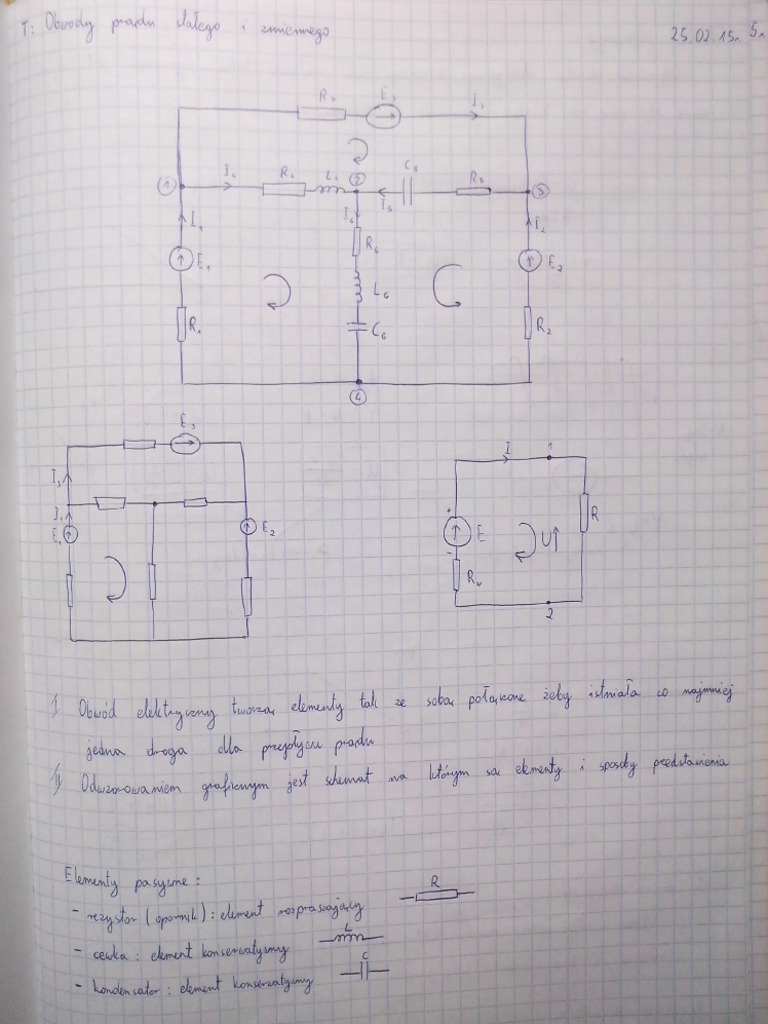 T: Obwody prądu stałego i zmiennego
25.02.15r. 5r
R₃ E₃ I₃
① I₄ R₄ L₄ ② C₅ R₅ ③
I₅
I₁ I₆ I₂
R₆
E₁ E₂
L₆
R₁ C₆ R₂
④
E₃
I₃
I₁
E₁ E₂
I 1
+ E U R
-
Rw
2
I) Obwód elektryczny tworzą elementy tak ze sobą połączone żeby istniała co najmniej
jedna droga dla przepływu prądu
II) Odwzorowaniem graficznym jest schemat na którym są elementy i sposoby przedstawienia
Elementy pasywne:
- rezystor (opornik): element rozpraszający R
- cewka: element konserwatywny L
- kondensator: element konserwatywny C